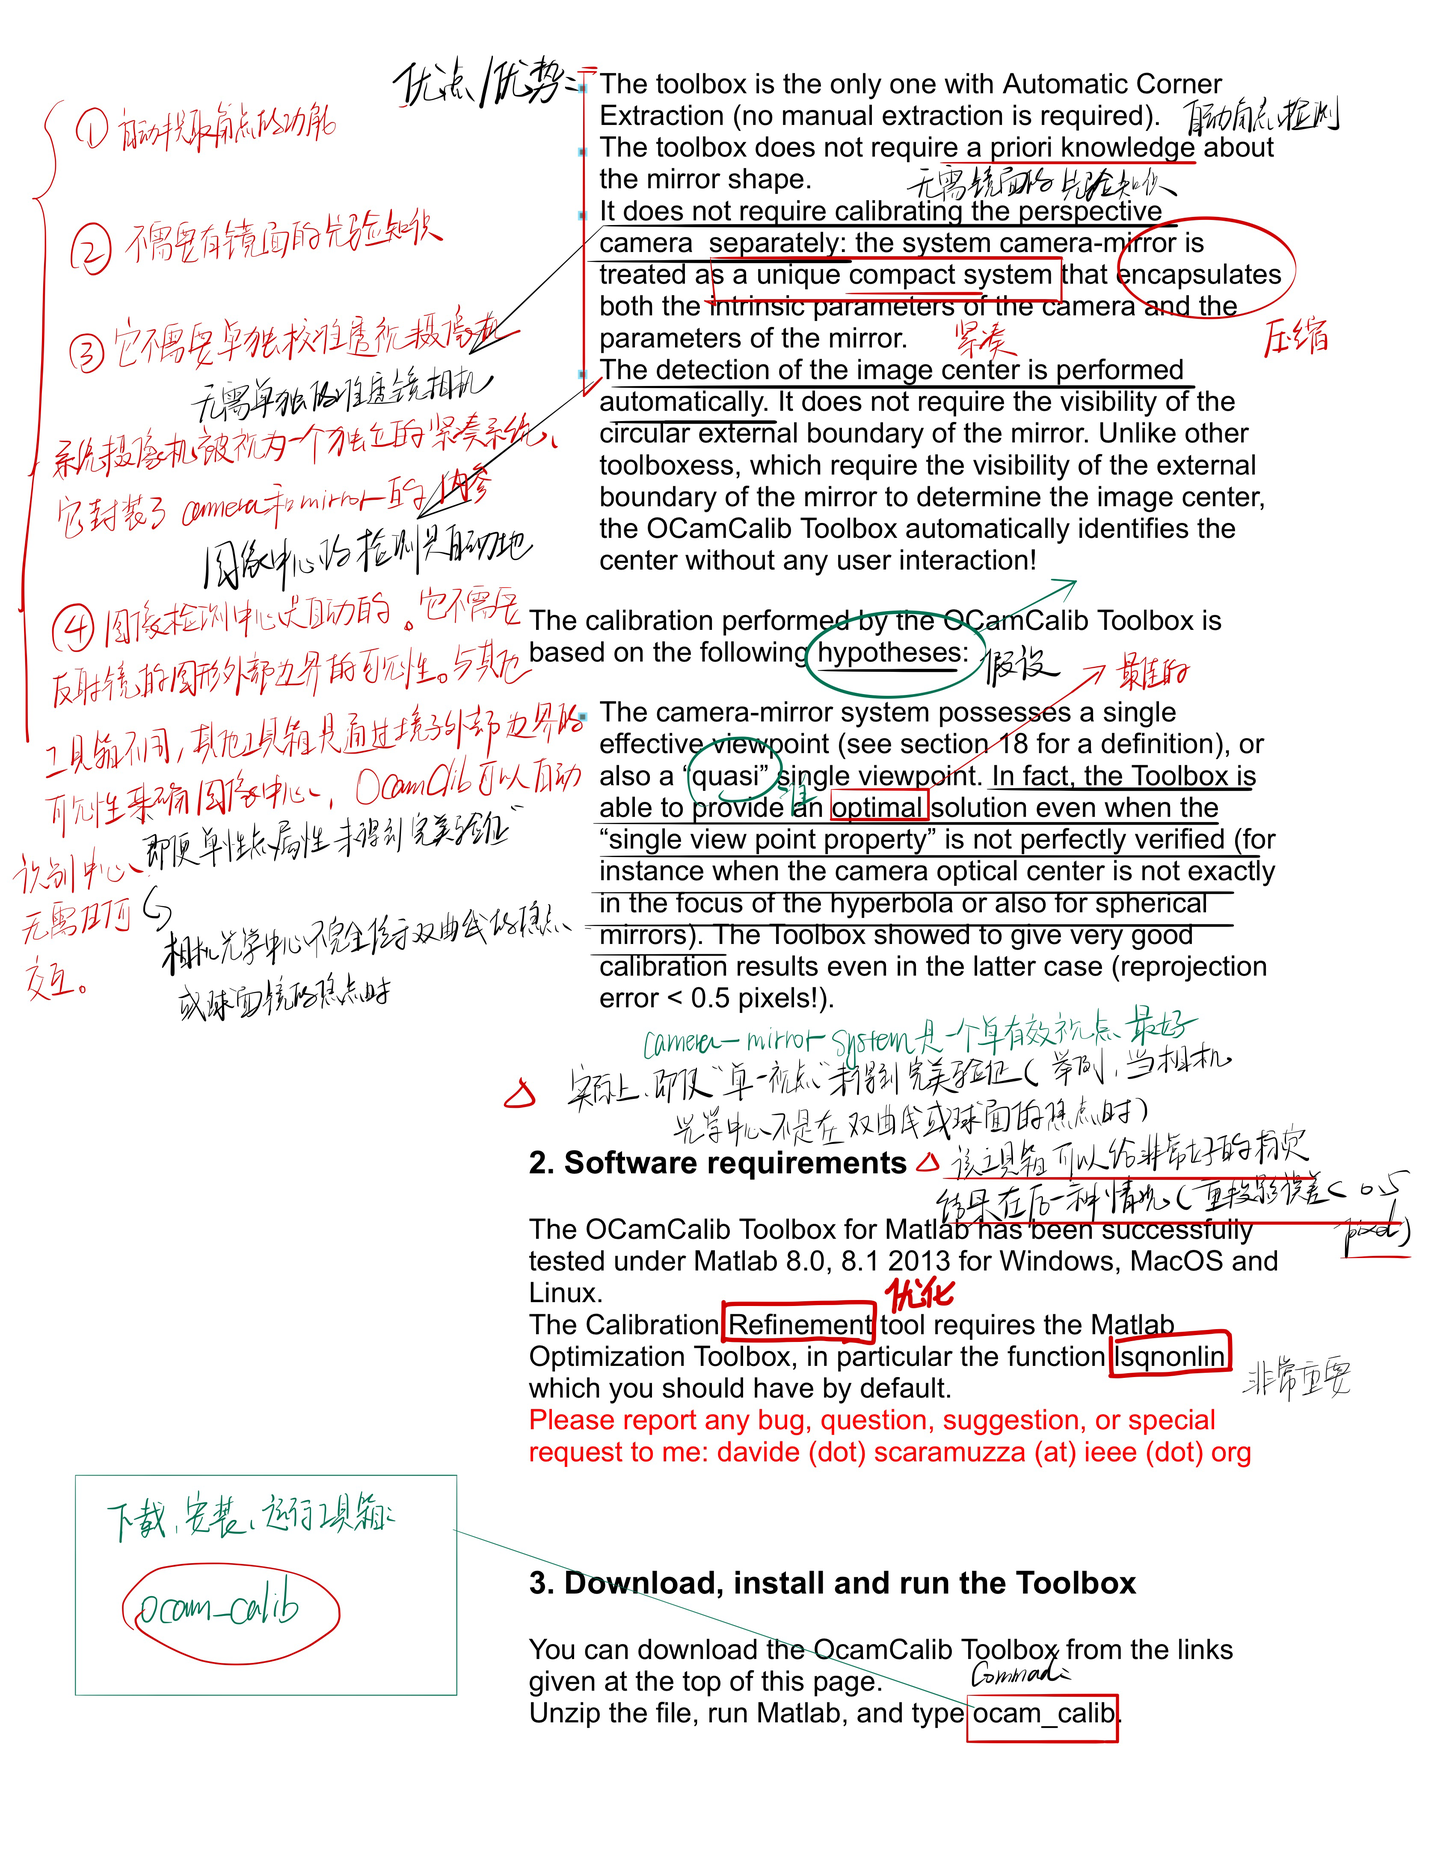 优点/优势:
The toolbox is the only one with Automatic Corner
Extraction (no manual extraction is required).
自动角点检测
The toolbox does not require a priori knowledge about
the mirror shape.
无需镜面的先验知识
It does not require calibrating the perspective
camera separately: the system camera-mirror is
treated as a unique compact system that encapsulates
both the intrinsic parameters of the camera and the
parameters of the mirror.
紧凑
压缩
The detection of the image center is performed
automatically. It does not require the visibility of the
circular external boundary of the mirror. Unlike other
toolboxess, which require the visibility of the external
boundary of the mirror to determine the image center,
the OCamCalib Toolbox automatically identifies the
center without any user interaction!
① 自动提取角点的功能
② 不需要有镜面的先验知识
③ 它不需要单独校准透视摄像机
无需单独校准透镜相机
系统摄像机被视为一个独立的紧凑系统、
它封装了 camera和mirror的内参
图像中心的检测是自动地
④ 图像检测中心是自动的。它不需要
反射镜的圆形外部边界的可见性。与其他
工具箱不同,其他工具箱是通过镜子外部边界的
可见性来确图像中心、, OcamClib可以自动
识别中心、
无需任何
交互。
即便单性点属性未得到完美验证”
相机光学中心不完全位于双曲线的焦点、
或球面镜的焦点时
The calibration performed by the OCamCalib Toolbox is
based on the following hypotheses:
假设
最佳的
The camera-mirror system possesses a single
effective viewpoint (see section 18 for a definition), or
also a “quasi” single viewpoint. In fact, the Toolbox is
准
able to provide an optimal solution even when the
“single view point property” is not perfectly verified (for
instance when the camera optical center is not exactly
in the focus of the hyperbola or also for spherical
mirrors). The Toolbox showed to give very good
calibration results even in the latter case (reprojection
error < 0.5 pixels!).
camera-mirror system是一个单有效视点 最好
实际上、即便“单一视点”未得到完美验证(举例,当相机
光学中心不是在双曲线或球面的焦点时)
2. Software requirements
该工具箱可以给非常好的标定
结果在后一种情况(重投影误差< 0.5
pixel)
The OCamCalib Toolbox for Matlab has been successfully
tested under Matlab 8.0, 8.1 2013 for Windows, MacOS and
Linux.
优化
The Calibration Refinement tool requires the Matlab
Optimization Toolbox, in particular the function lsqnonlin
which you should have by default.
非常重要
Please report any bug, question, suggestion, or special
request to me: davide (dot) scaramuzza (at) ieee (dot) org
下载、安装、运行工具箱:
ocam_calib
3. Download, install and run the Toolbox
You can download the OcamCalib Toolbox from the links
given at the top of this page.
Commad:
Unzip the file, run Matlab, and type ocam_calib.